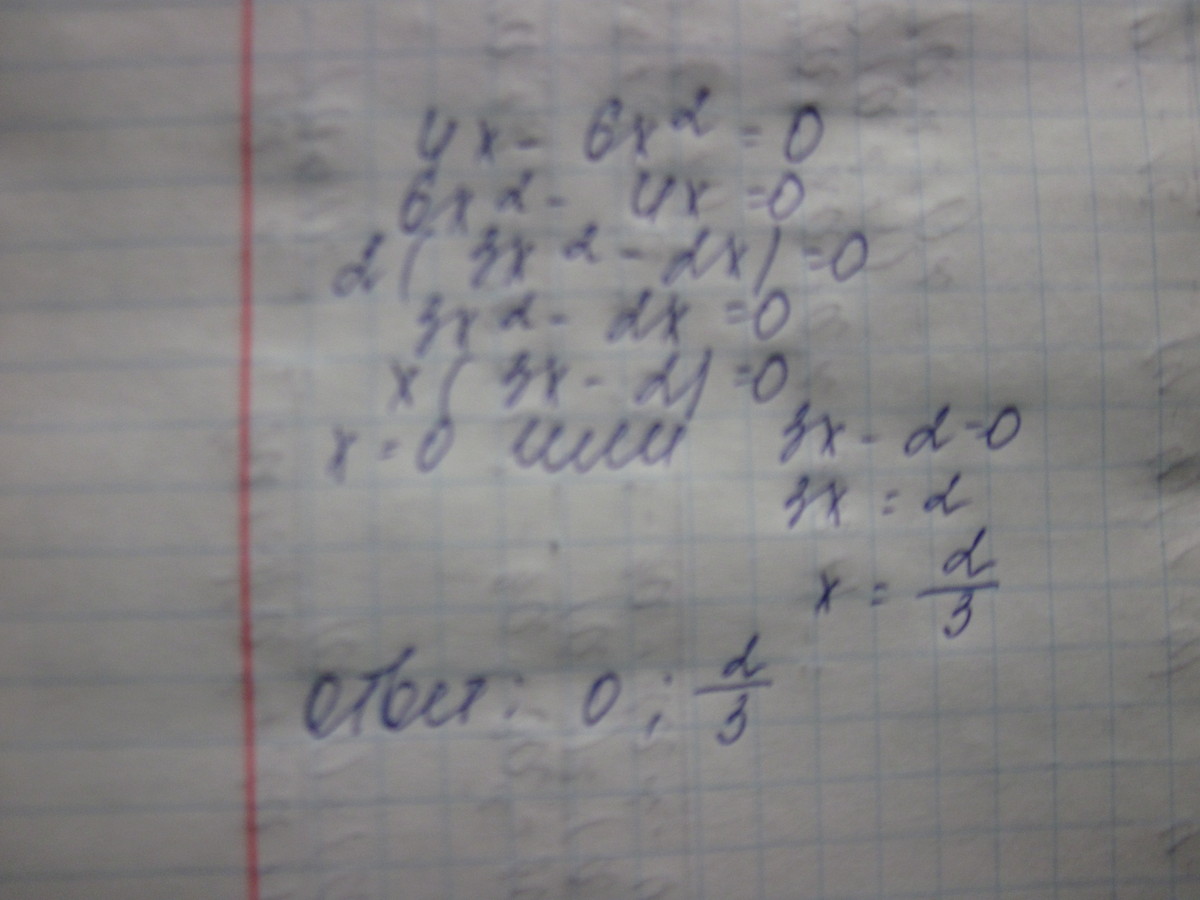 4x - 6x² = 0
6x² - 4x = 0
2(3x² - 2x) = 0
3x² - 2x = 0
x(3x - 2) = 0
x = 0 или 3x - 2 = 0
3x = 2
x = 2/3
Ответ: 0; 2/3